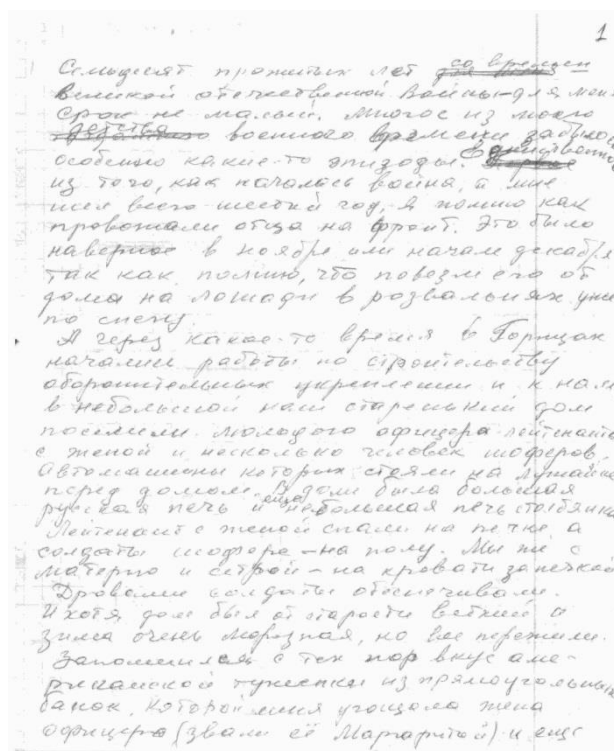 1
Семьдесят прожитых лет со времен
великой отечественной войны для мен
срок не малый. Многое из моего
детства военного времени забылос
особенно какие-то эпизоды. Единственно
из того, как началась война, а мне
шел всего шестой год, я помню как
провожали отца на фронт. Это было
наверное в ноябре или начале декабря
так как помню, что повезли его от
дома на лошади в розвальнях уже
по снегу
А через какое-то время в Горицах
начались работы по строительству
оборонительных укреплении и к нам
в небольшой наш старенький дом
поселили молодого офицера-лейтенанта
с женой и несколько человек шоферов,
автомашины которых стояли на лужайке
перед домом. В доме была большая
русская печь и еще небольшая печь столбянка
Лейтенант с женой спали на печке, а
солдаты шофера – на полу. Мы же с
матерью и сестрой – на кровати за печкой
Дровами солдаты обеспечивали.
И хотя дом был от старости ветхий а
зима очень морозная, но все пережили.
Запомнился с тех пор вкус аме-
риканской тушенки из прямоугольных
банок, которой меня угощала жена
офицера (звали её Маргаритой) и еще